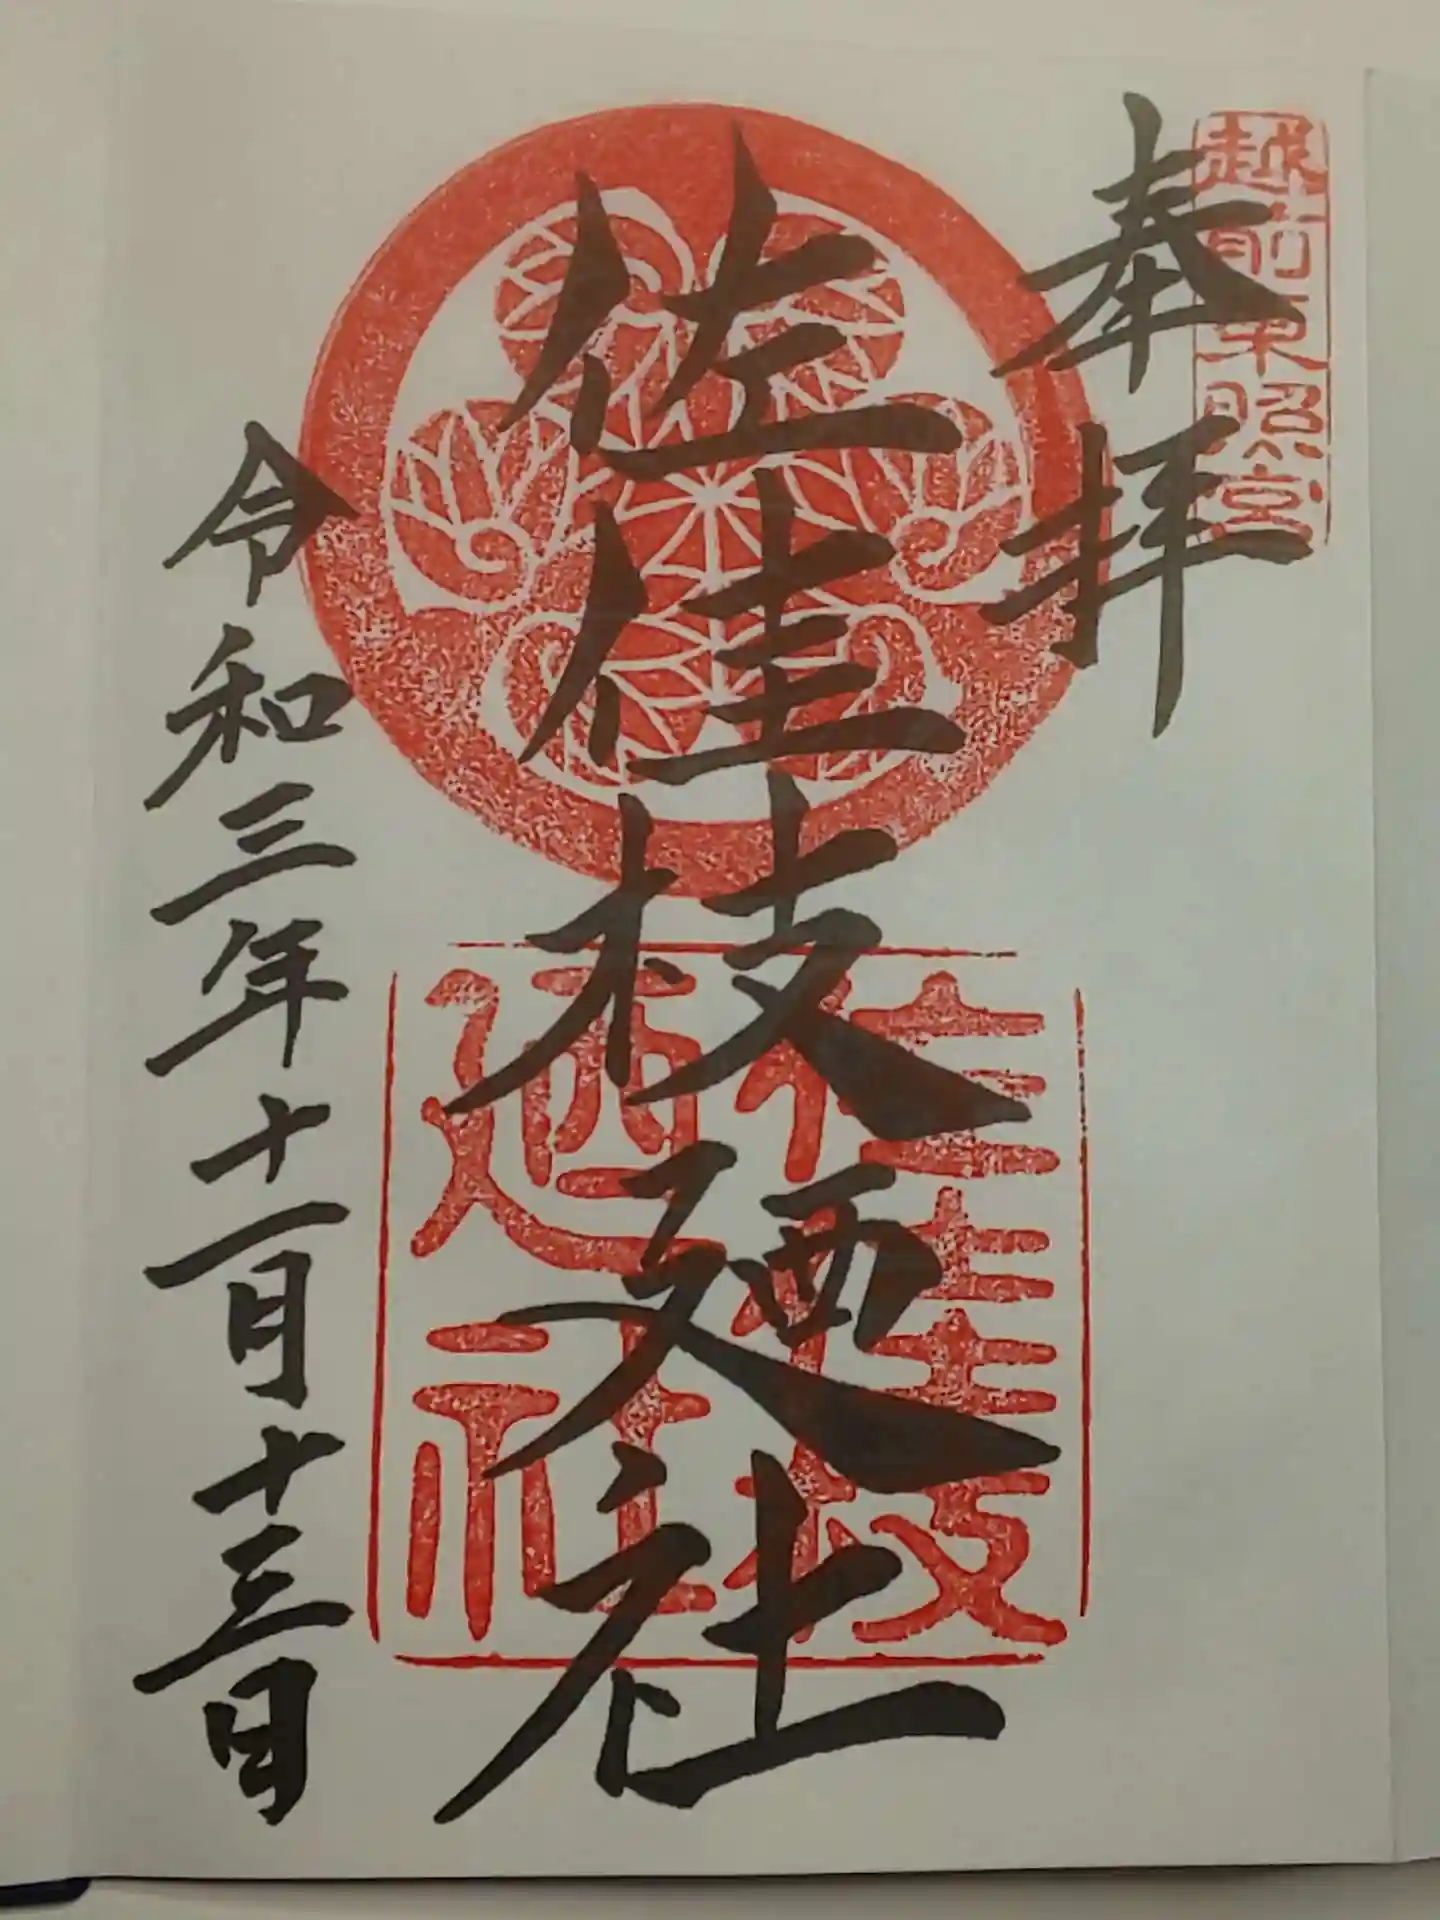 越前東照宮
奉拝
佐佳枝廼社
佐佳枝廼社
令和三年十一月十三日